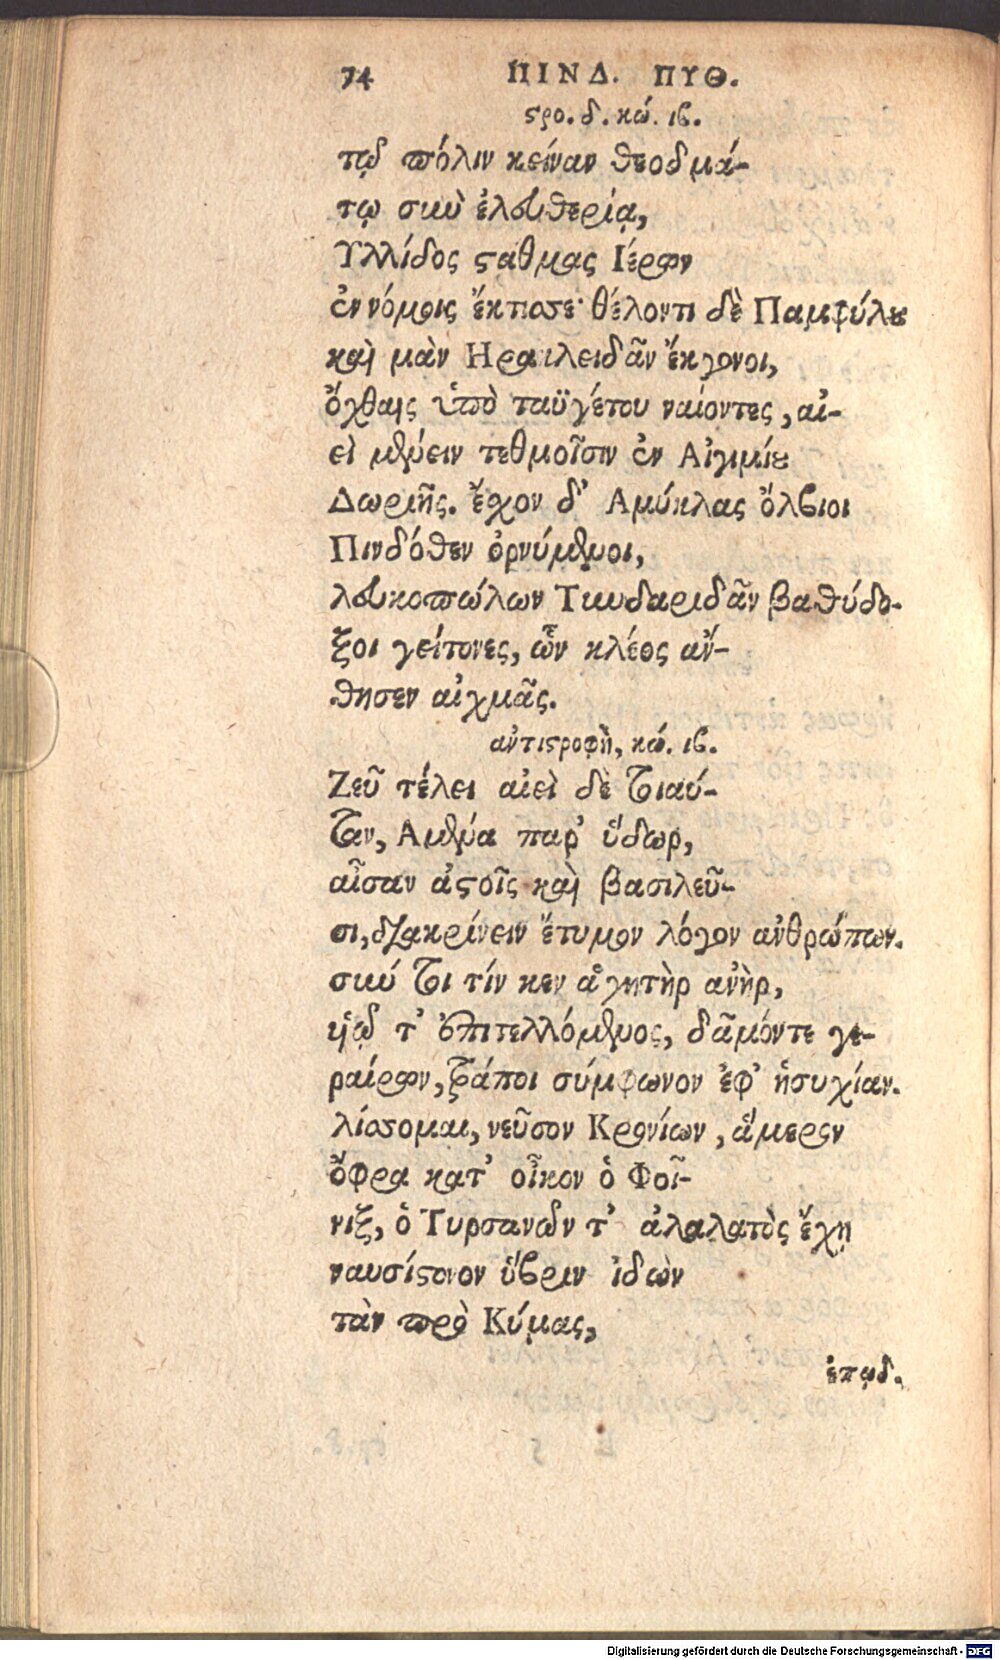 74 ΠΙΝΔ. ΠΥΘ.
ςρο. δ. κώ. ιβ.
τῷ πόλιν κείναν θεοδμά-
τῳ σὺν ἐλευθερίᾳ,
Υλλίδος ςάθμας Ιέρων
ἐν νόμοις ἔκτισσε· θέλοντι δὲ Παμφύλου
καὶ μὰν Ηρακλειδᾶν ἔκγονοι,
ὄχθαις ὑπὸ ταϋγέτου ναίοντες, αἰ-
εὶ μένειν τεθμοῖσιν ἐν Αἰγιμίου
Δωριῆς. ἔχον δ' Αμύκλας ὄλβιοι
Πινδόθεν ὀρνύμενοι,
λευκοπώλων Τυνδαριδᾶν βαθύδο-
ξοι γείτονες, ὧν κλέος ἄν-
θησεν αἰχμᾶς.
ἀντιςροφὴ, κώ. ιβ.
Ζεῦ τέλει αἰεὶ δὲ τοιαύ-
ταν, Αμένα παρ' ὕδωρ,
αἶσαν ἀςοῖς καὶ βασιλεῦ-
σι, διακρίνειν ἔτυμον λόγον ἀνθρώπων.
σύν τοι τίν κεν ἁγητὴρ ἀνὴρ,
υἱῷ τ' ἐπιτελλόμενος, δᾶμόν τε γε-
ραίρων, τράποι σύμφωνον ἐφ' ἡσυχίαν.
λίσσομαι, νεῦσον Κρονίων, ἅμερον
ὄφρα κατ' οἶκον ὁ Φοῖ-
νιξ, ὁ Τυρσανῶν τ' ἀλαλατὸς ἔχῃ
ναυσίςονον ὕβριν ἰδὼν
τὰν πρὸ Κύμας,
ἐπῳδ.
Digitalisierung gefördert durch die Deutsche Forschungsgemeinschaft - DFG